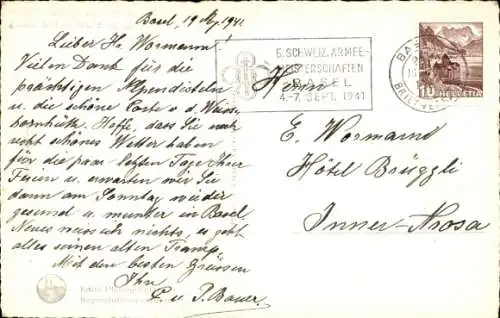 Basel, 19 Aug. 1941.
Lieber Hr. Wormann!
Vielen Dank für die
prächtigen Alpendisteln
u. die schöne Karte v. d. Weiss-
hornhütte. Hoffe, dass Sie auch
recht schönes Wetter haben
für die paar letzten Tage Ihrer
Ferien u. erwarten wir Sie
dann am Sonntag wieder
gesund u. munter in Basel.
Neues weiss ich nichts, es geht
alles seinen alten Tramp.
Mit den besten Grüssen
Ihr
C. u. P. Bauer.
5. SCHWEIZ. ARMEE-
MEISTERSCHAFTEN
BASEL
4.-7. SEPT. 1941
BRIEFVERS
10 HELVETIA
Herrn
E. Wormann
Hôtel Brüggli
Inner-Arosa